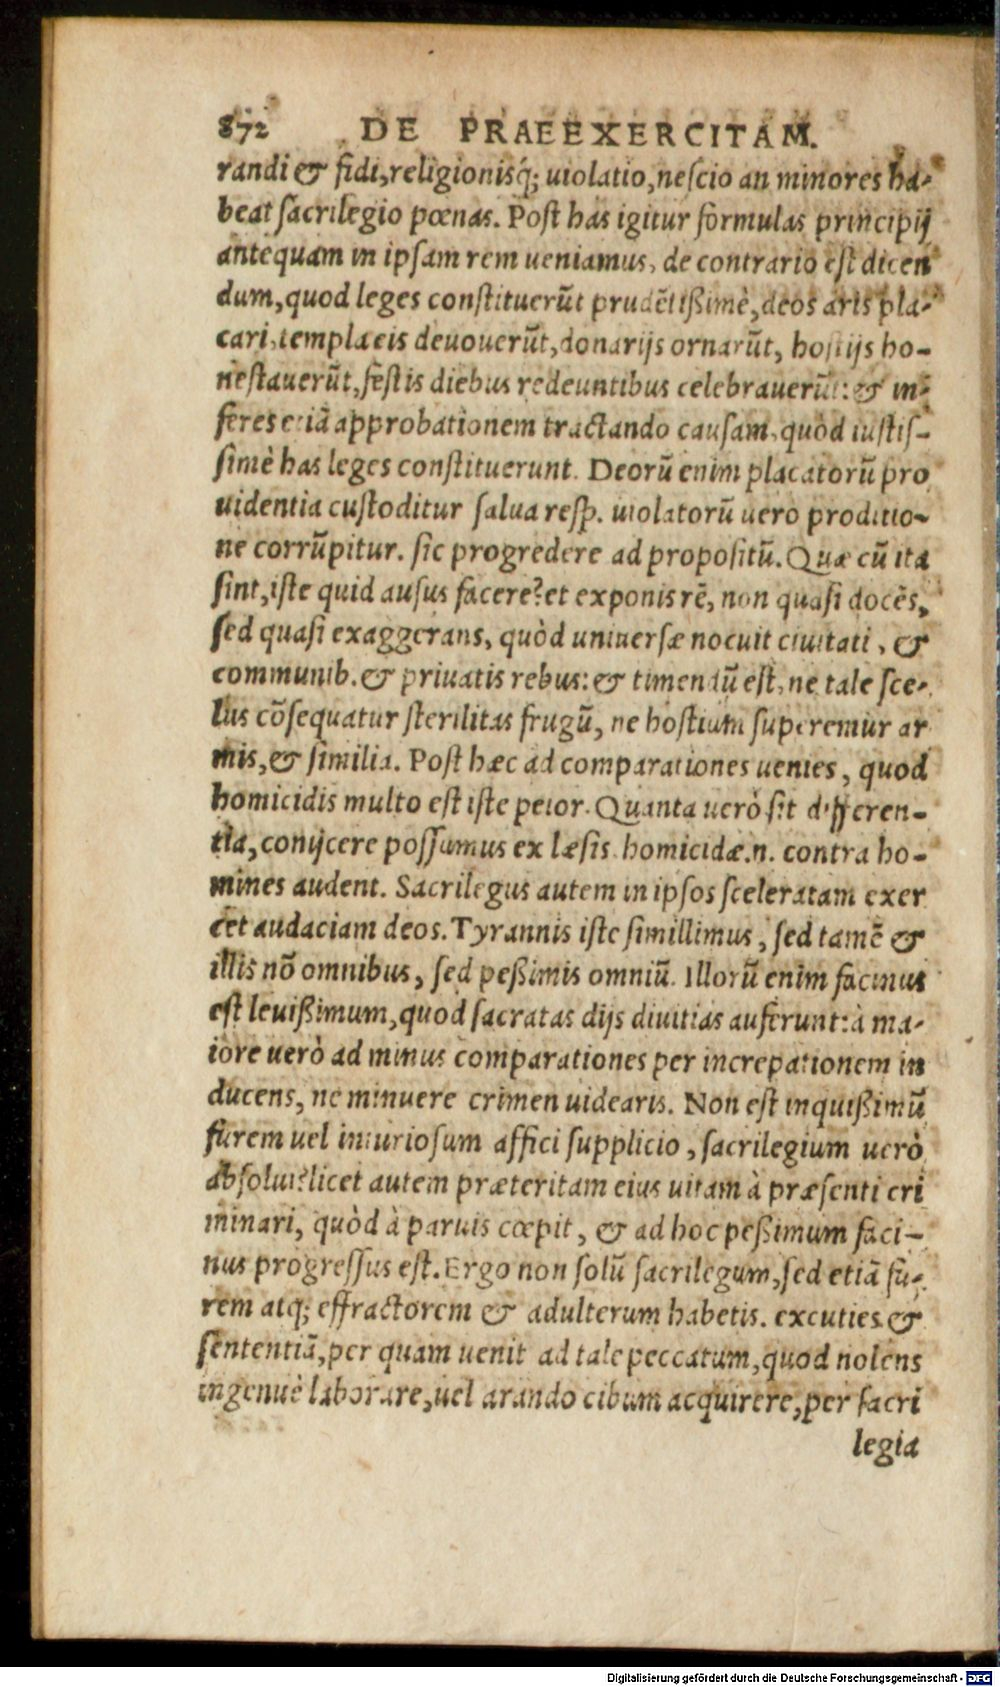 872 DE PRAEEXERCITAM.
randi & fidi, religionisq́; uiolatio, nescio an minores ha-
beat sacrilegio pœnas. Post has igitur formulas principij
antequam in ipsam rem ueniamus, de contrario est dicen
dum, quod leges constituerũt prudẽtißimè, deos aris pla-
cari, templa eis deuouerũt, donarijs ornarũt, hostijs ho-
nestauerũt, festis diebus redeuntibus celebrauerũt: & in-
feres etiã approbationem tractando causam, quòd iustis-
simè has leges constituerunt. Deorũ enim placatorũ pro
uidentia custoditur salua resp. uiolatorũ uero proditio-
ne corrũpitur. sic progredere ad propositũ. Quæ cũ ita
sint, iste quid ausus facere? et exponis rẽ, non quasi docẽs,
sed quasi exaggerans, quòd uniuersæ nocuit ciuitati, &
communib. & priuatis rebus: & timendũ est, ne tale sce-
lus cõsequatur sterilitas frugũ, ne hostium superemur ar
mis, & similia. Post hæc ad comparationes uenies, quod
homicidis multo est iste peior. Quanta uerò sit differen-
tia, conijcere possumus ex læsis. homicidæ.n. contra ho-
mines audent. Sacrilegus autem in ipsos sceleratam exer
cet audaciam deos. Tyrannis iste simillimus, sed tamẽ &
illis nõ omnibus, sed peßimis omniũ. Illorũ enim facinus
est leuißimum, quod sacratas dijs diuitias auferunt: à ma-
iore uerò ad minus comparationes per increpationem in
ducens, ne minuere crimen uidearis. Non est inquißimũ
furem uel iniuriosum affici supplicio, sacrilegium uerò
absolui? licet autem præteritam eius uitam à præsenti cri
minari, quòd à paruis cœpit, & ad hoc peßimum faci-
nus progressus est. Ergo non solũ sacrilegum, sed etiã fu-
rem atq; effractorem & adulterum habetis. excuties &
sententiã, per quam uenit ad tale peccatum, quod nolens
ingenuè laborare, uel arando cibum acquirere, per sacri
legia
Digitalisierung gefördert durch die Deutsche Forschungsgemeinschaft - DFG